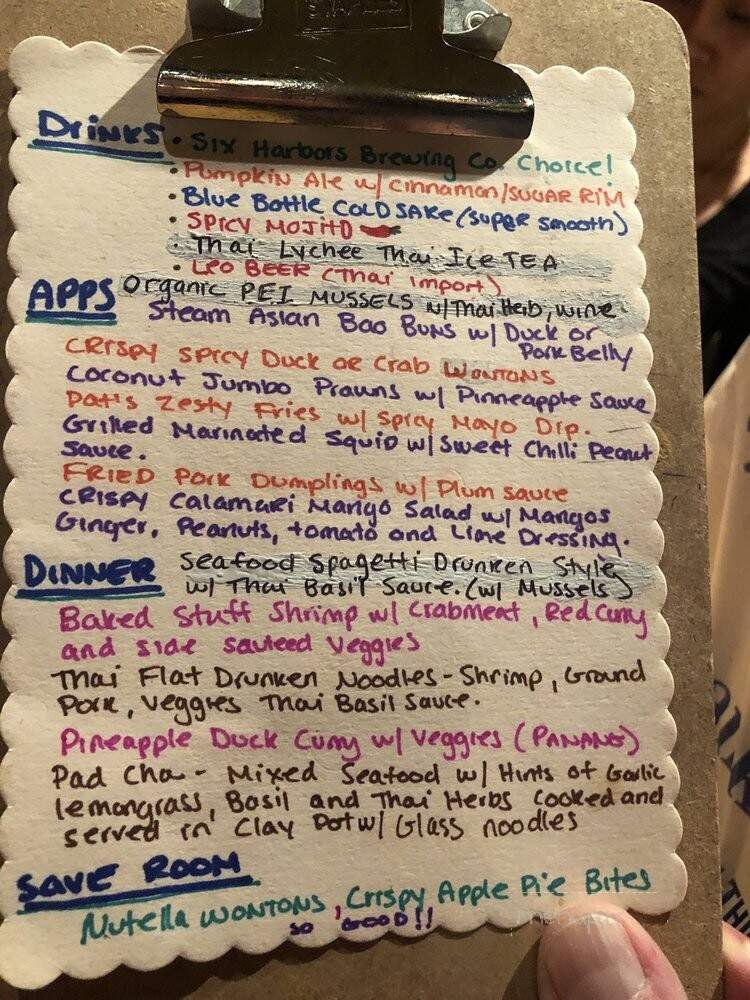 STAPLES
Drinks • Six Harbors Brewing Co. Choice!
• Pumpkin Ale w/ cinnamon/SUGAR RiM
• Blue Bottle COLD SAKE (super smooth)
• SPICY MOJITO
• Thai Lychee Thai Ice TEA
• LEO BEER (Thai import)
APPS Organic PEI MUSSELS w/Thai Herb, wine
Steam Asian Bao Buns w/ Duck or
Pork Belly
CRISPY SPICY Duck or Crab WONTONS
Coconut Jumbo Prawns w/ Pinneapple Sauce
Pat's Zesty Fries w/ Spicy Mayo Dip.
Grilled Marinated Squid w/ Sweet Chilli Peanut
Sauce.
FRIED Pork Dumplings w/ Plum sauce
CRISPY Calamari Mango Salad w/ Mangos
Ginger, Peanuts, tomato and Lime Dressing.
DINNER Seafood Spagetti Drunken Style
w/ Thai Basil Sauce. (w/ Mussels)
Baked Stuff Shrimp w/ Crabmeat, Red Curry
and side sauteed Veggies
Thai Flat Drunken Noodles - Shrimp, Ground
Pork, Veggies Thai Basil Sauce.
Pineapple Duck Curry w/ Veggies (PANANG)
Pad Cha - Mixed Seafood w/ Hints of Garlic
lemongrass, Basil and Thai Herbs Cooked and
served in Clay Pot w/ Glass noodles
SAVE ROOM
Nutella WONTONS, Crispy Apple Pie Bites
so GOOD!!